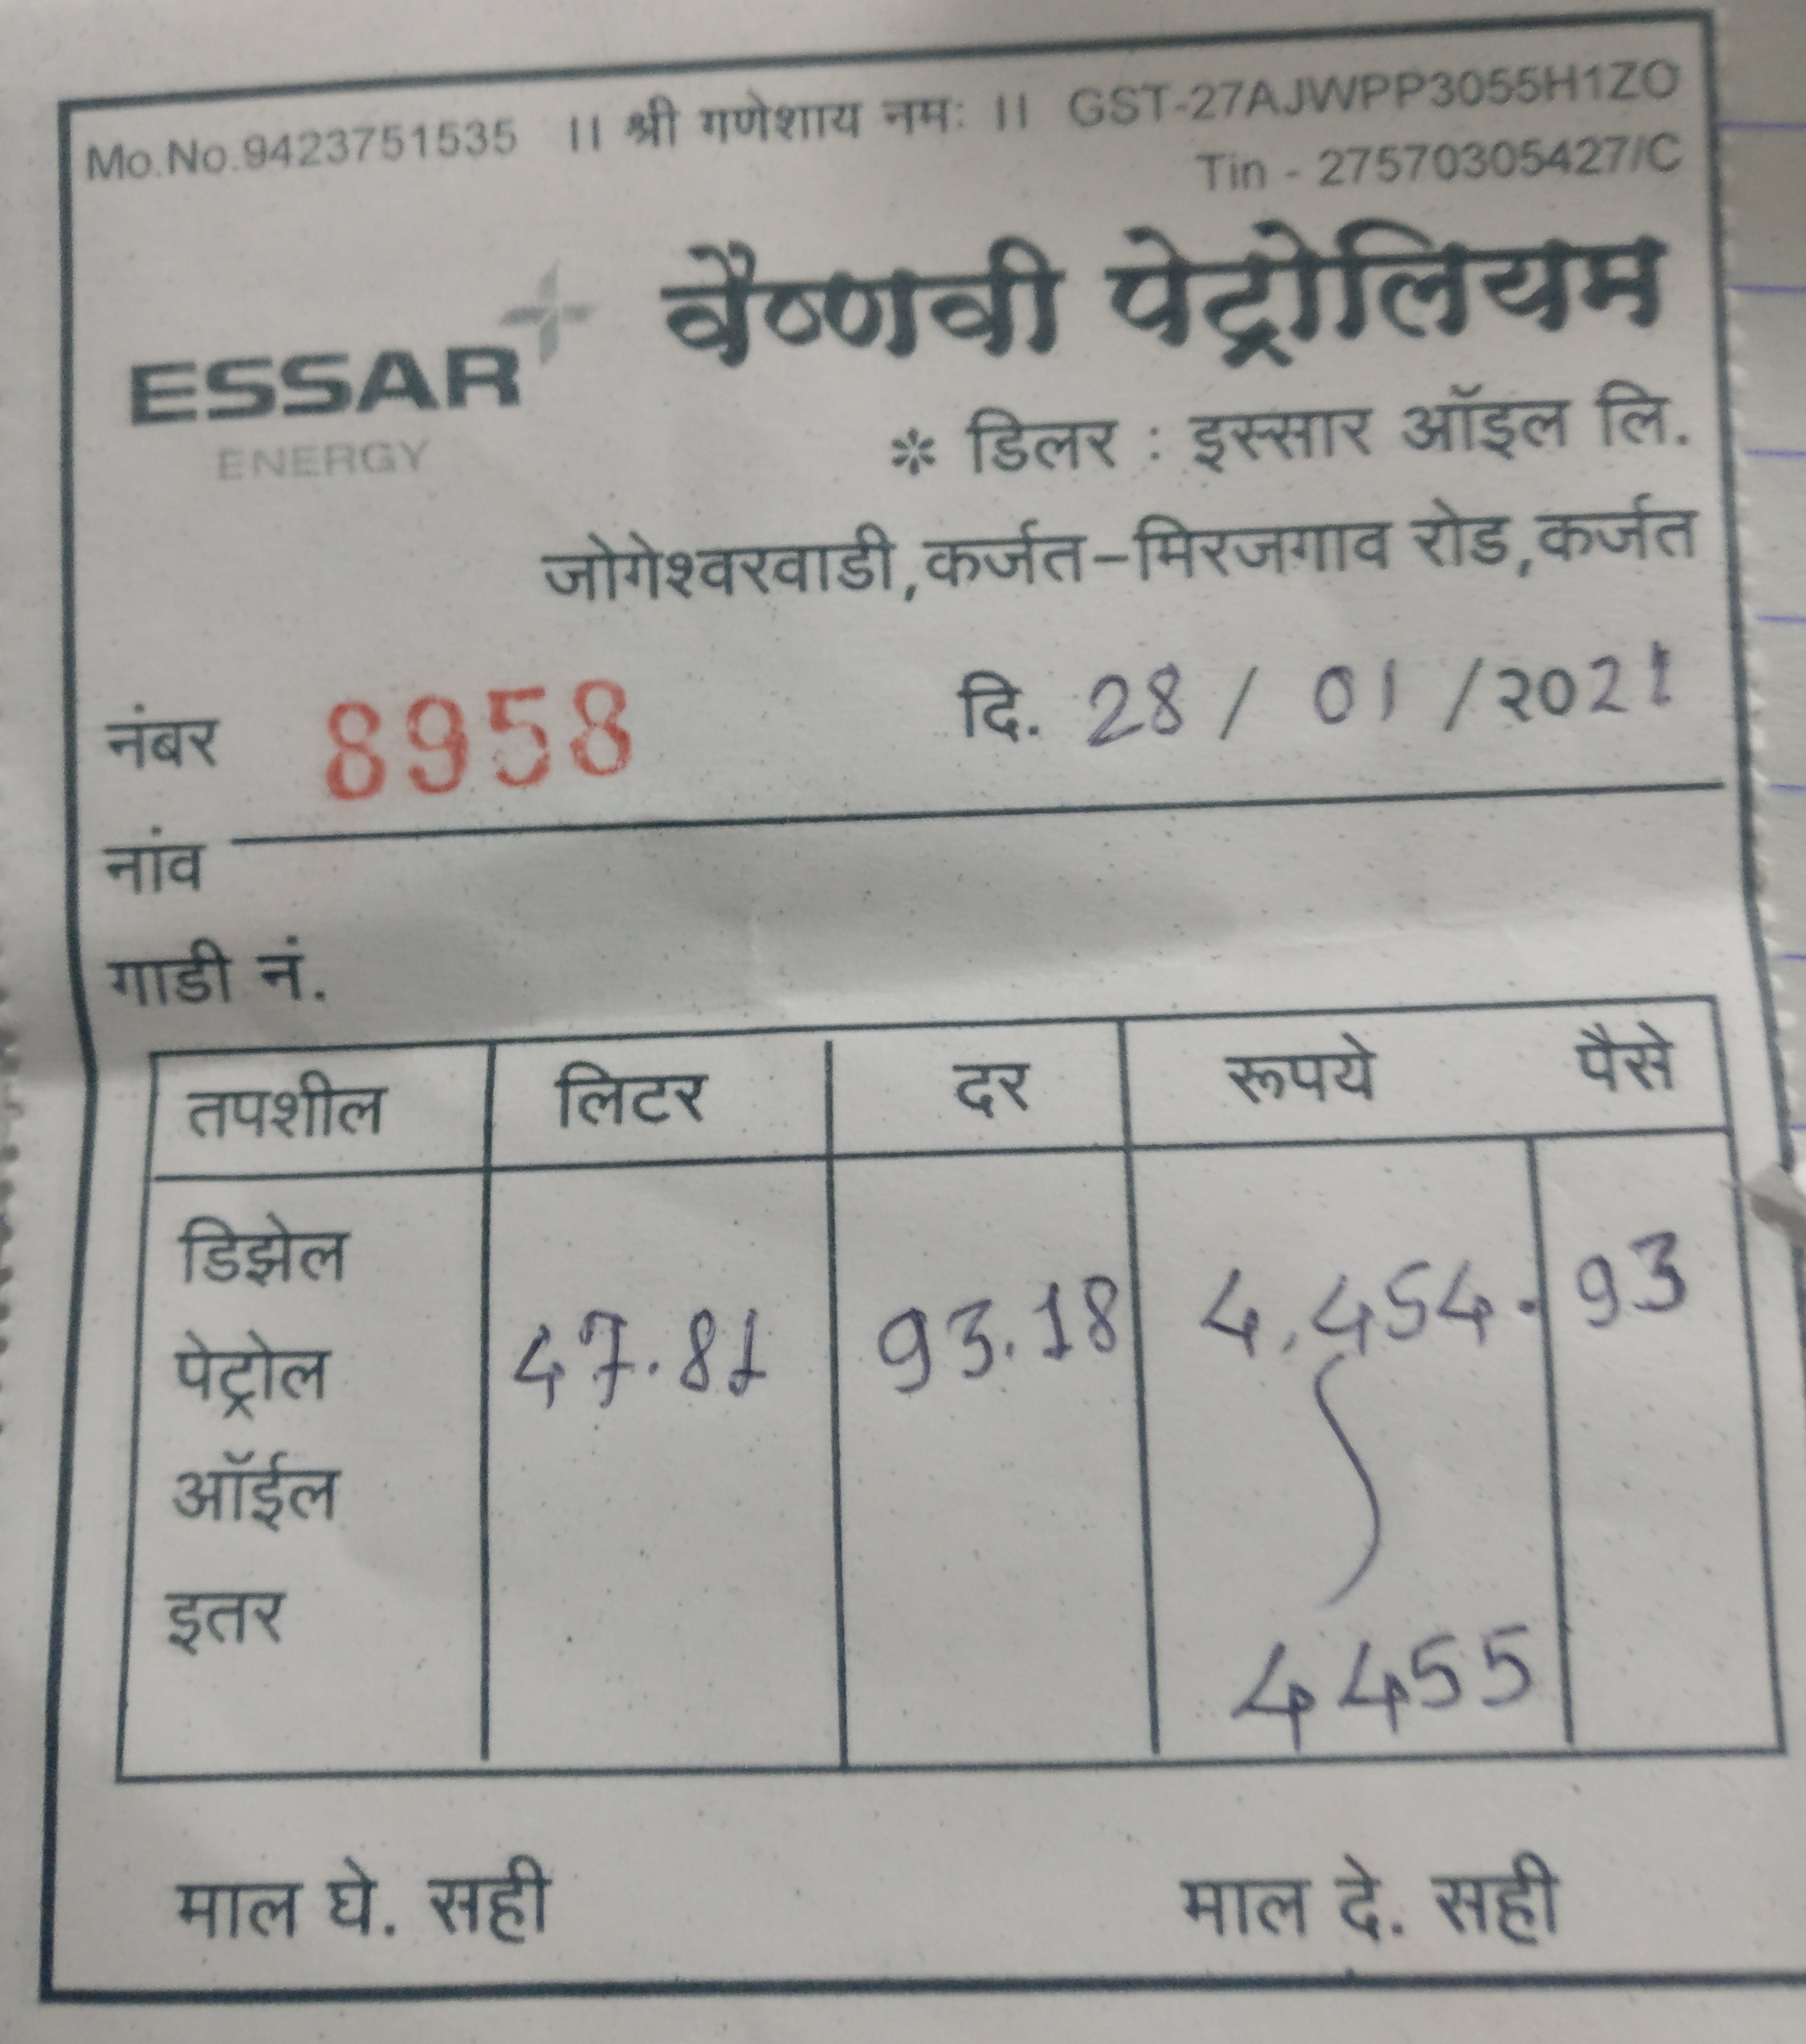 Mo.No.9423751535 ।। श्री गणेशाय नमः ।। GST-27AJWPP3055H1ZO
Tin - 27570305427/C
ESSAR वैष्णवी पेट्रोलियम
ENERGY
* डिलर : इस्सार ऑइल लि.
जोगेश्वरवाडी,कर्जत-मिरजगाव रोड,कर्जत
नंबर 8958 दि. 28 / 01 / २०21
नांव
गाडी नं.
तपशील लिटर दर रूपये पैसे
डिझेल
पेट्रोल 47.81 93.18 4,454. 93
ऑईल
इतर
4455
माल घे. सही माल दे. सही